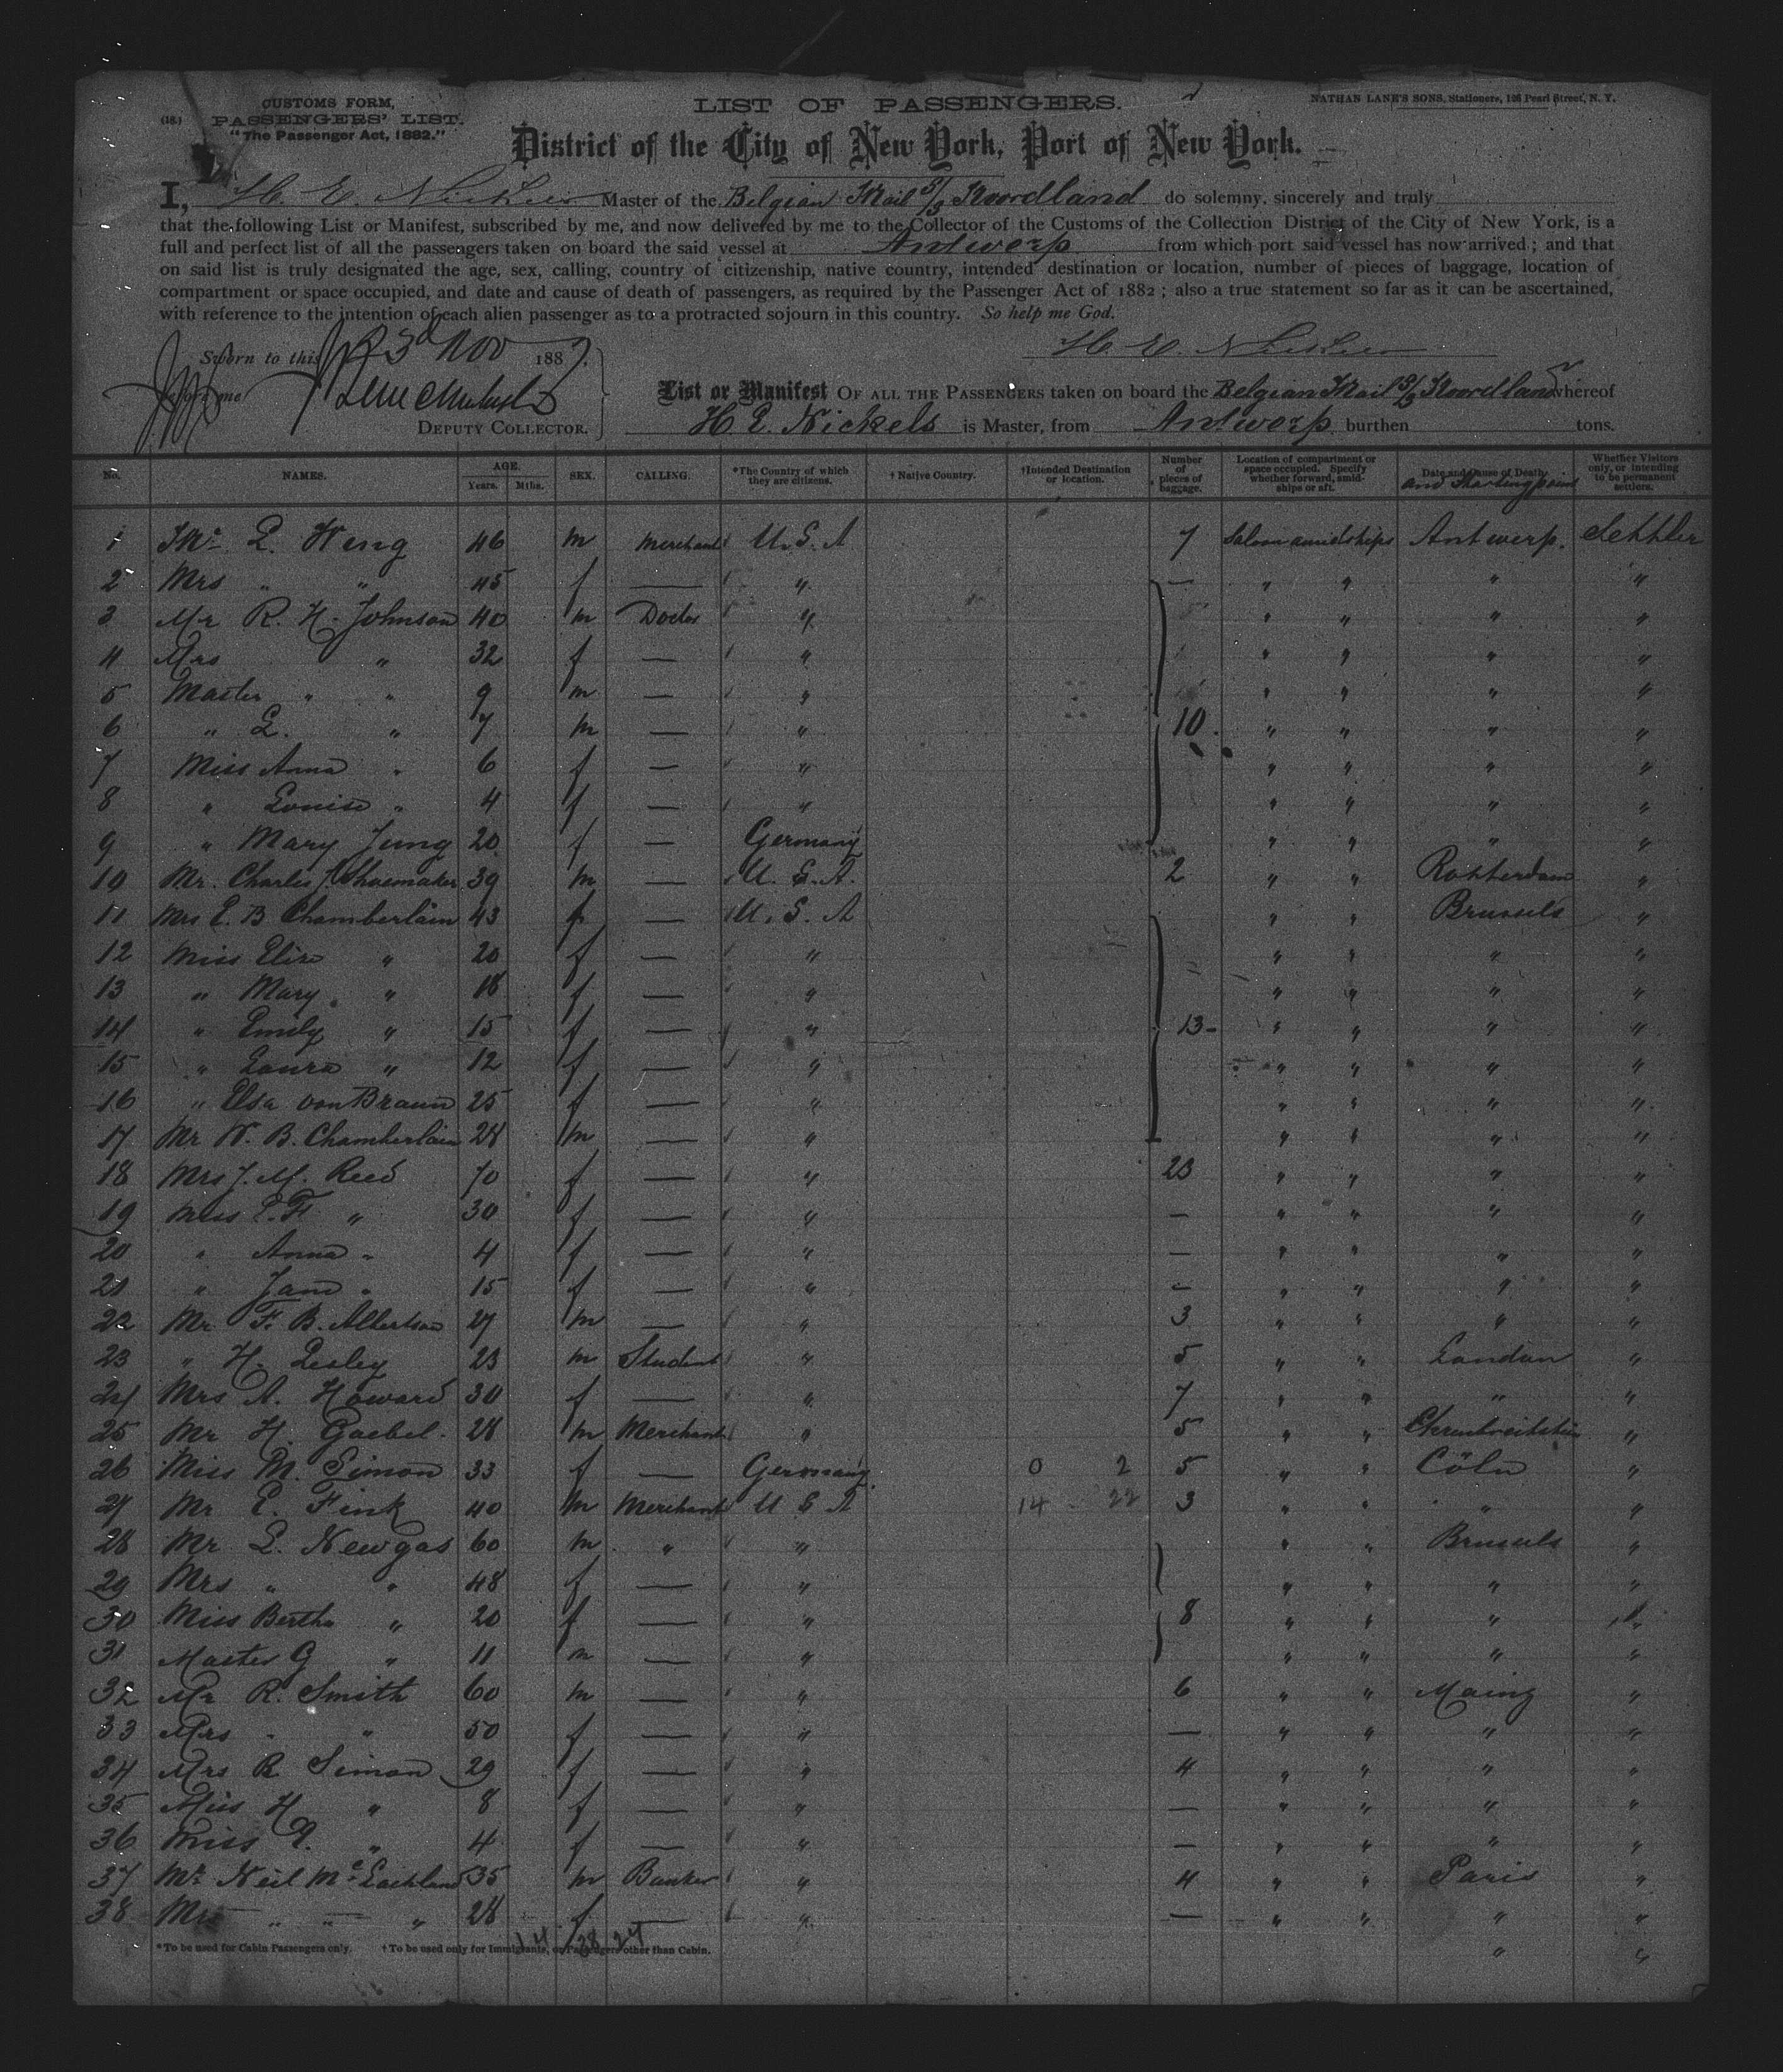 CUSTOMS FORM,
(18.) PASSENGERS' LIST.
"The Passenger Act, 1882."
LIST OF PASSENGERS.
NATHAN LANE'S SONS, Stationers, 106 Pearl Street, N. Y.
District of the City of New York, Port of New York.
I, H. E. Nickels Master of the Belgian Mail S/S Noordland do solemny, sincerely and truly
that the following List or Manifest, subscribed by me, and now delivered by me to the Collector of the Customs of the Collection District of the City of New York, is a
full and perfect list of all the passengers taken on board the said vessel at Antwerp from which port said vessel has now arrived; and that
on said list is truly designated the age, sex, calling, country of citizenship, native country, intended destination or location, number of pieces of baggage, location of
compartment or space occupied, and date and cause of death of passengers, as required by the Passenger Act of 1882; also a true statement so far as it can be ascertained,
with reference to the intention of each alien passenger as to a protracted sojourn in this country. So help me God.
Sworn to this 3d Nov 1887.
H. E. Nickels
before me
DEPUTY COLLECTOR.
List or Manifest OF ALL THE PASSENGERS taken on board the Belgian Mail S/S Noordland whereof
H. E. Nickels is Master, from Antwerp burthen tons.
No. NAMES. AGE. Years. Mths. SEX. CALLING. *The Country of which they are citizens. †Native Country. †Intended Destination or location. Number of pieces of baggage. Location of compartment or space occupied. Specify whether forward, amidships or aft. Date and Cause of Death and Starting point Whether Visitors only, or intending to be permanent settlers.
1 Mr. L. Weng 46 m Merchant U.S.A 7 Saloon amidships Antwerp. Settler
2 Mrs " " 45 f — " — " " " "
3 Mr R. H. Johnson 40 m Doctor " " " " "
4 Mrs " 32 f — " " " " "
5 Master " " 9 m — " " " " "
6 " L. " 7 m — " 10. " " " "
7 Miss Anna " 6 f — " " " " "
8 " Louise " 4 f — " " " " "
9 " Mary Jung 20 f — Germany " " " "
10 Mr. Charles J. Shoemaker 39 m — U.S.A. 2 " " Rotterdam "
11 Mrs E. B Chamberlain 43 f — U.S.A " " Brussels "
12 Miss Elise " 20 f — " " " " "
13 " Mary " 18 f — " " " " "
14 " Emily " 15 f — " 13- " " " "
15 " Laura " 12 f — " " " " "
16 " Elsa von Braun 25 f — " " " " "
17 Mr W. B. Chamberlain 28 m — " " " " "
18 Mrs J. M. Reed 70 f — " 23 " " " "
19 Miss E. F " 30 f — " — " " " "
20 " Anna " 4 f — " — " " " "
21 " Jane " 15 f — " — " " " "
22 Mr F. B. Albertson 27 m — " 3 " " " "
23 " H. Lesley 23 m Student " 5 " " London "
24 Mrs A. Howard 30 f — " 7 " " " "
25 Mr H. Goebel. 28 m Merchant " 5 " " Ehrenbreitstein "
26 Miss M. Simon 33 f — Germany 0 2 5 " " Cöln "
27 Mr E. Fink 40 m Merchant U S A 14 - 22 3 " " " "
28 Mr L. Newgas 60 m " " " " Brussels "
29 Mrs " " 48 f — " " " " "
30 Miss Bertha " 20 f — " 8 " " " "
31 Master G " 11 m — " " " " "
32 Mr R. Smith 60 m — " 6 " " Mainz "
33 Mrs " " 50 f — " — " " " "
34 Mrs R Simon 29 f — " 4 " " " "
35 Miss H " 8 f — " — " " " "
36 Miss " 4 f — " — " " " "
37 Mr. Neil McLachland 35 m Banker " 4 " " Paris "
38 Mrs " " " 28 f — " — " " " "
*To be used for Cabin Passengers only. †To be used only for Immigrants, or Passengers other than Cabin. " "
14 28 24